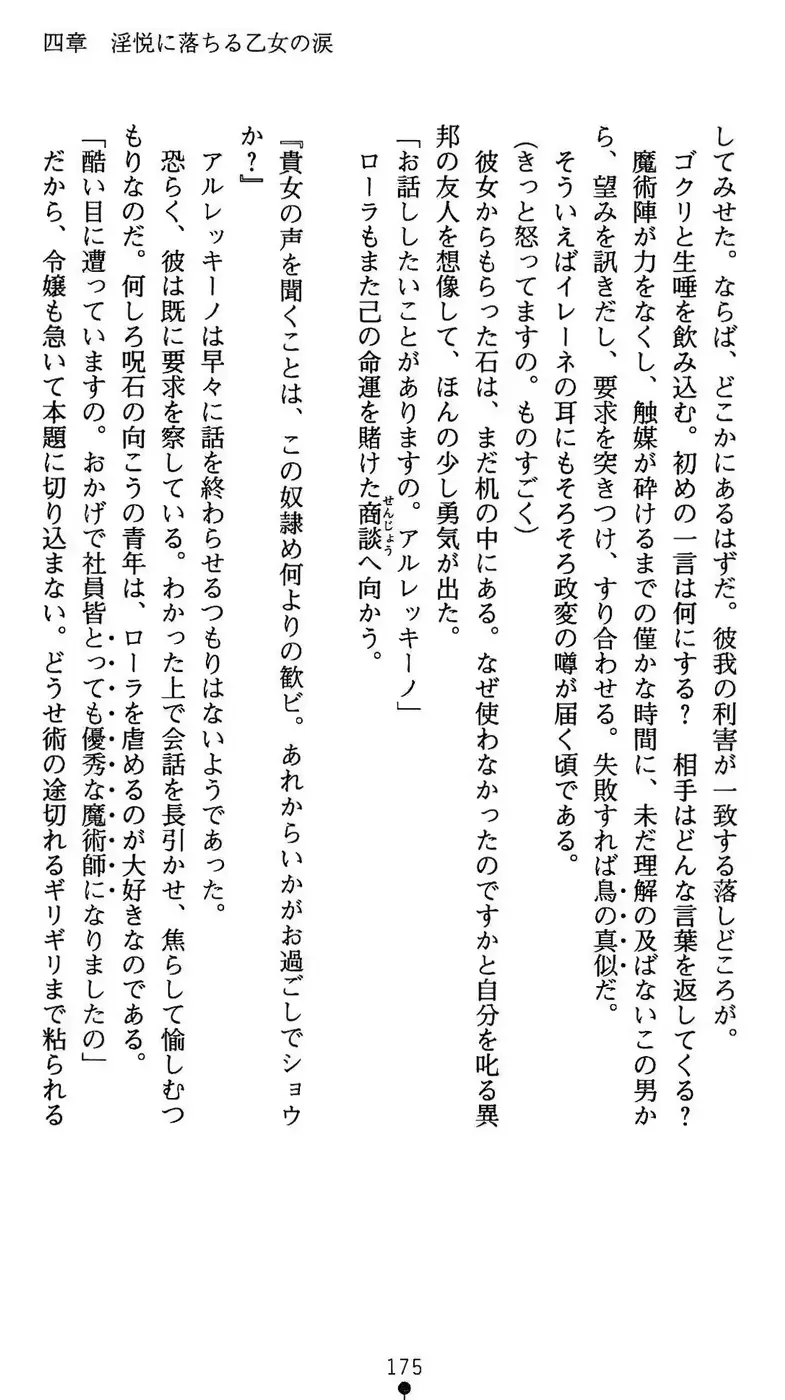 四章　淫悦に落ちる乙女の涙
してみせた。ならば、どこかにあるはずだ。彼我の利害が一致する落しどころが。
ゴクリと生唾を飲み込む。初めの一言は何にする？　相手はどんな言葉を返してくる？
魔術陣が力をなくし、触媒が砕けるまでの僅かな時間に、未だ理解の及ばないこの男か
ら、望みを訊きだし、要求を突きつけ、すり合わせる。失敗すれば鳥の真似だ。
そういえばイレーネの耳にもそろそろ政変の噂が届く頃である。
（きっと怒ってますの。ものすごく）
彼女からもらった石は、まだ机の中にある。なぜ使わなかったのですかと自分を叱る異
邦の友人を想像して、ほんの少し勇気が出た。
「お話ししたいことがありますの。アルレッキーノ」
ローラもまた己の命運を賭けた商談へ向かう。
せんじょう
『貴女の声を聞くことは、この奴隷め何よりの歓ビ。あれからいかがお過ごしでショウ
か？』
アルレッキーノは早々に話を終わらせるつもりはないようであった。
恐らく、彼は既に要求を察している。わかった上で会話を長引かせ、焦らして愉しむつ
もりなのだ。何しろ呪石の向こうの青年は、ローラを虐めるのが大好きなのである。
「酷い目に遭っていますの。おかげで社員皆とっても優秀な魔術師になりましたの」
だから、令嬢も急いて本題に切り込まない。どうせ術の途切れるギリギリまで粘られる
175